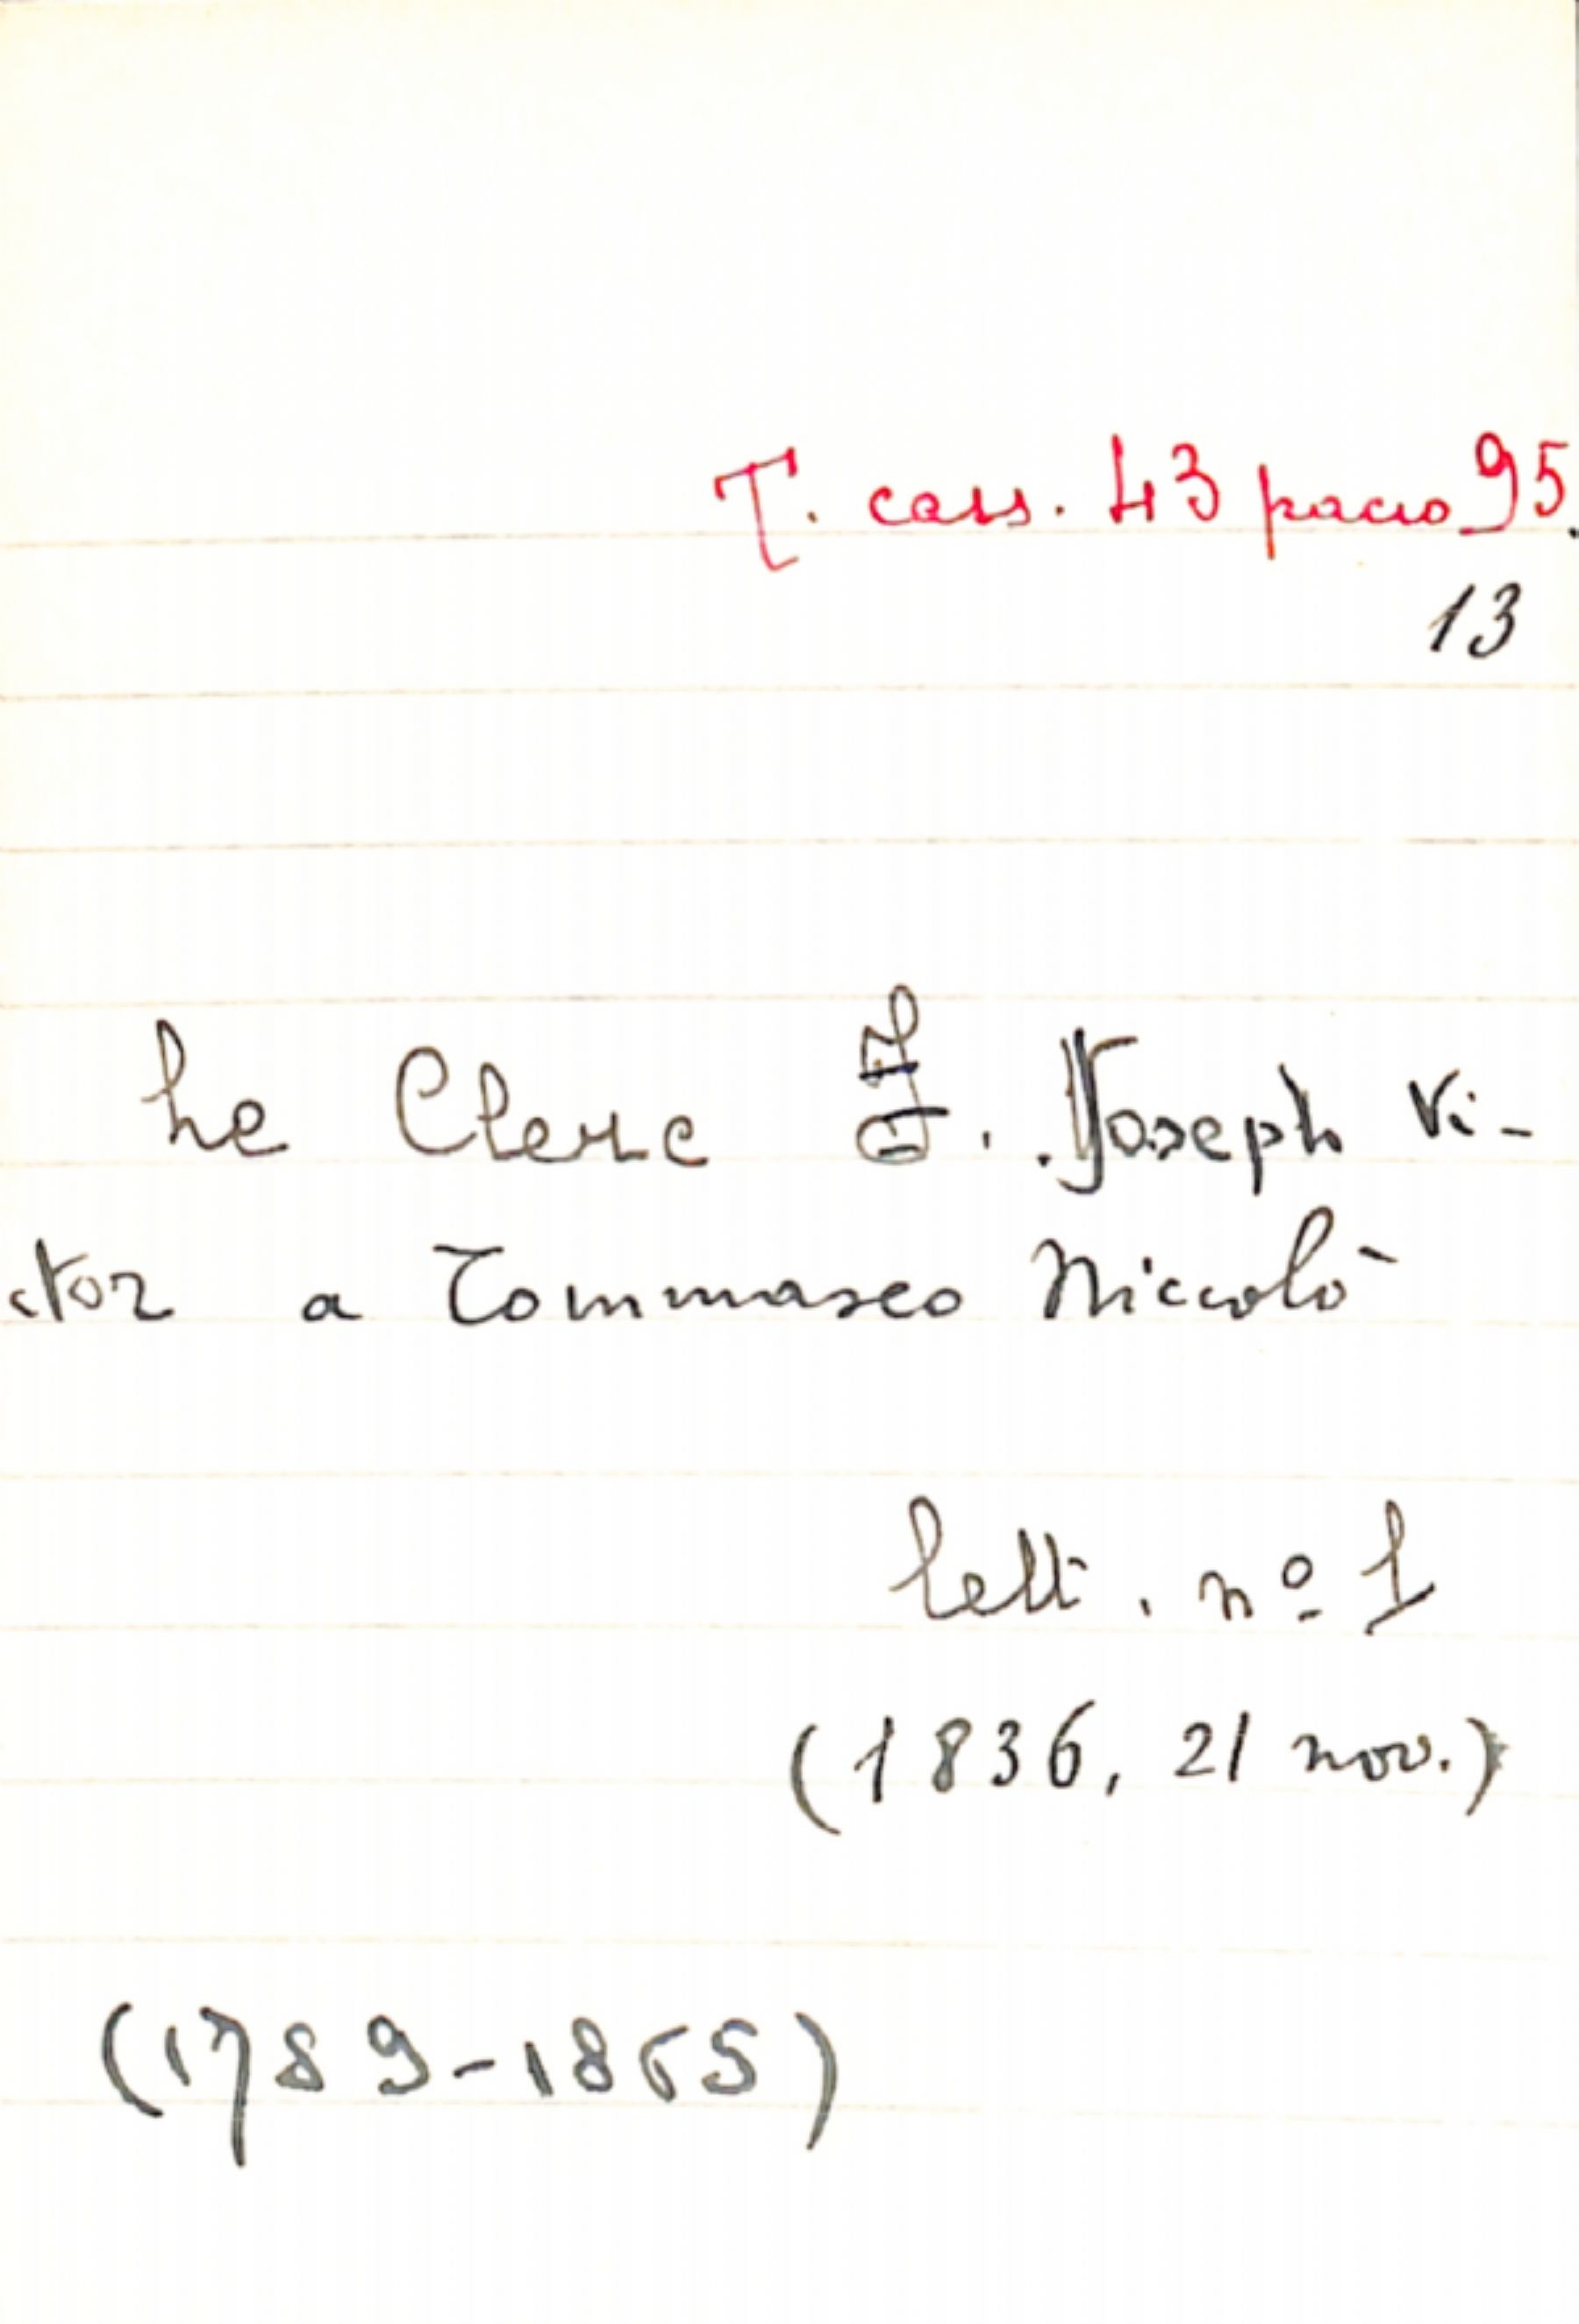 T. cass. 43 pacco 95.
13
Le Clerc J. Joseph Vi-
ctor a Tommaseo Niccolò
lett. nº 1
(1836, 21 nov.)
(1789-1865)